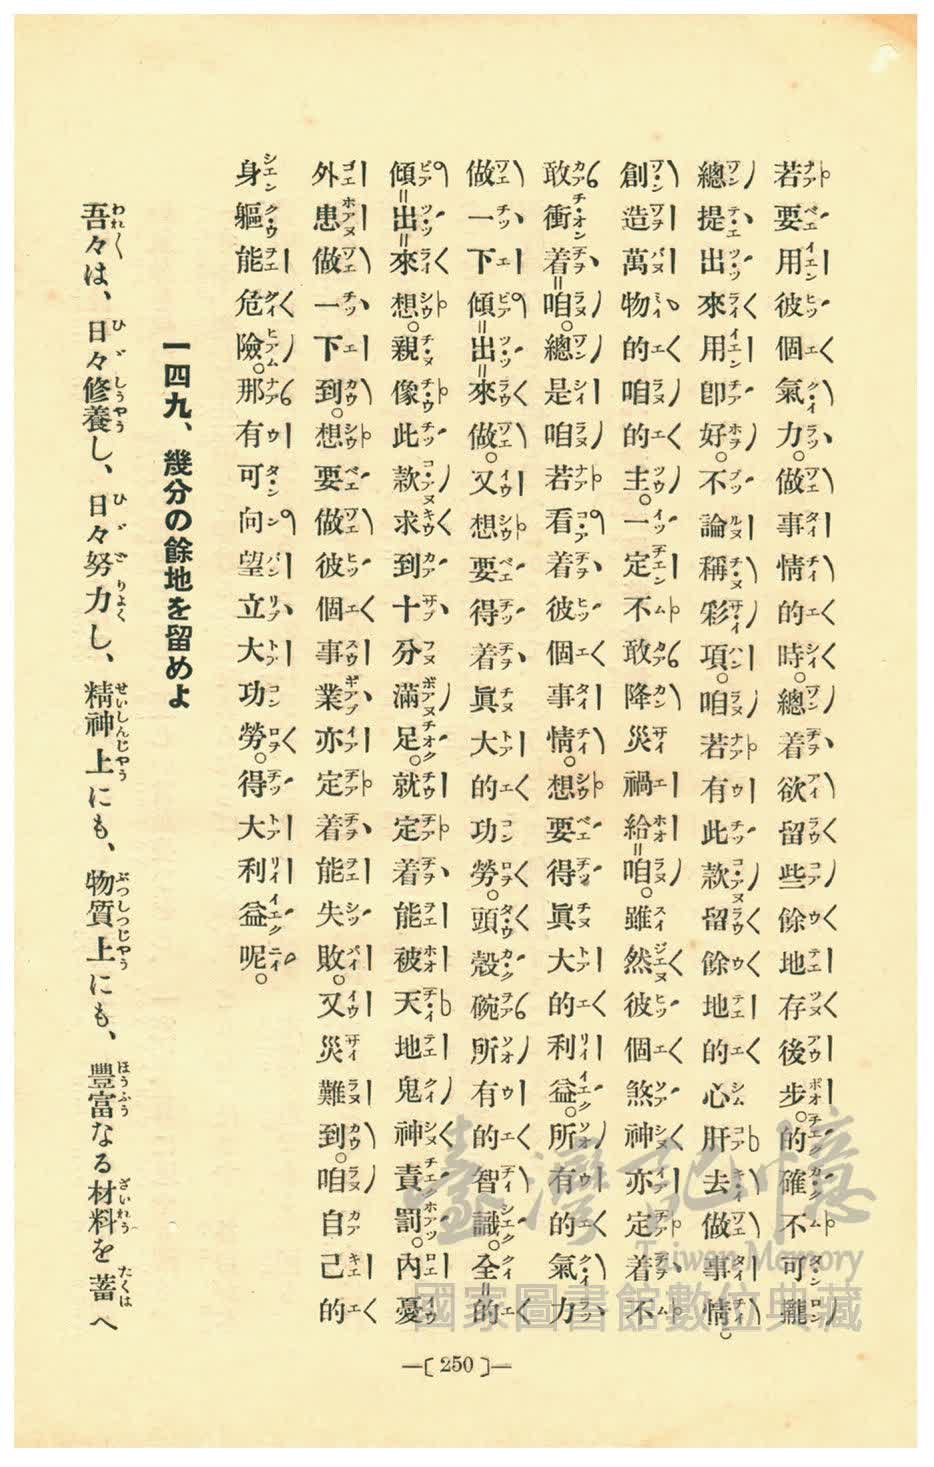 若要用彼個氣力。做事情的時總着欲留些餘地存後步。的確不可攏
總提出來用卽好。不論稱彩項。咱若有此款留餘地的心肝去做事情。
創造萬物的咱的主。一定不敢降災禍給咱。雖然彼個煞神亦定着不
敢衝着咱。總是咱若看着彼個事情。想要得眞大的利益。所有的氣力
做一下傾出來做。又想要得着眞大的功勞。頭殼碗所有的智識。全的
傾出來想。親像此款求到十分滿足。就定着能被天地鬼神責罰。內憂
外患做一下到。想要做彼個事業亦定着能失敗。又災難到。咱自己的
身軀能危險。那有可向望立大功勞。得大利益呢。
一四九、幾分の餘地を留めよ
吾々は、日々修養し、日々努力し、精神上にも、物質上にも、豐富なる材料を蓄へ
—〔 250 〕—
臺灣記憶
Taiwan Memory
國家圖書館數位典藏